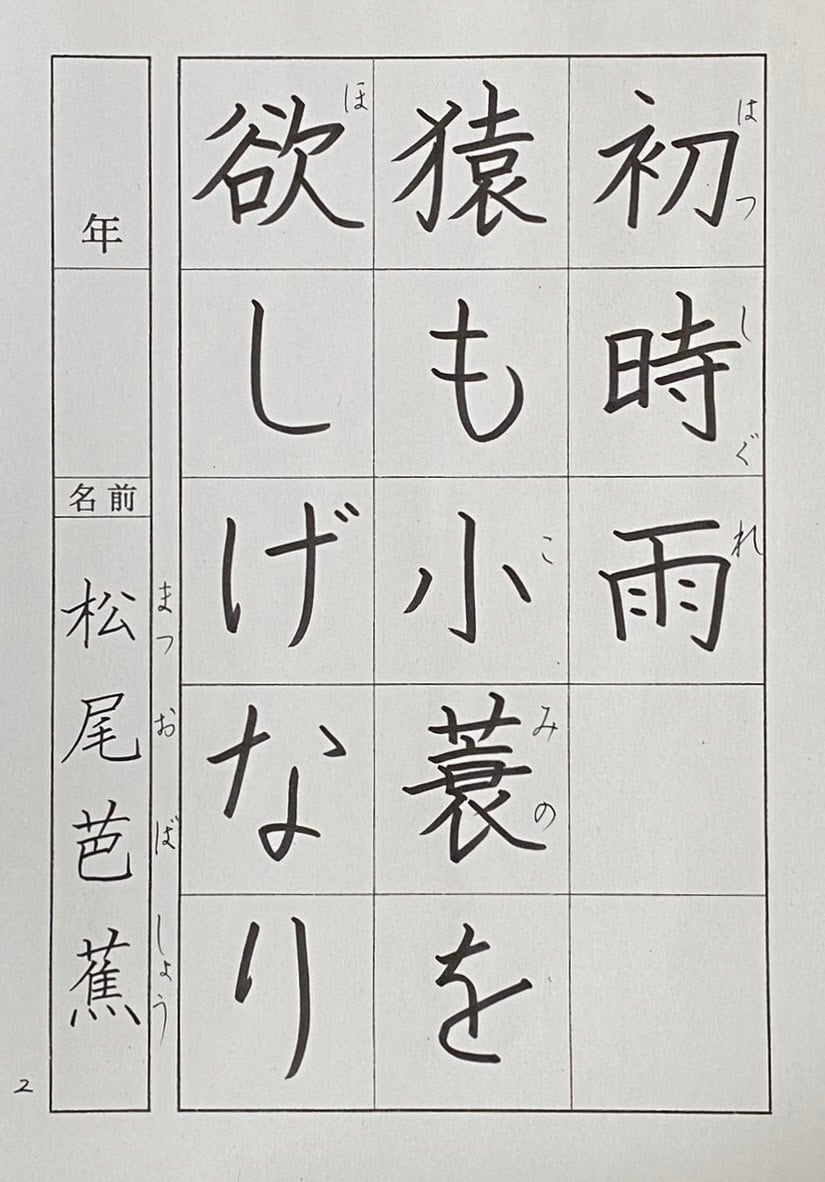 初時雨
はつしぐれ
猿も小蓑を
こみの
欲しげなり
ほ
年
名前
松尾芭蕉
まつおばしょう
2